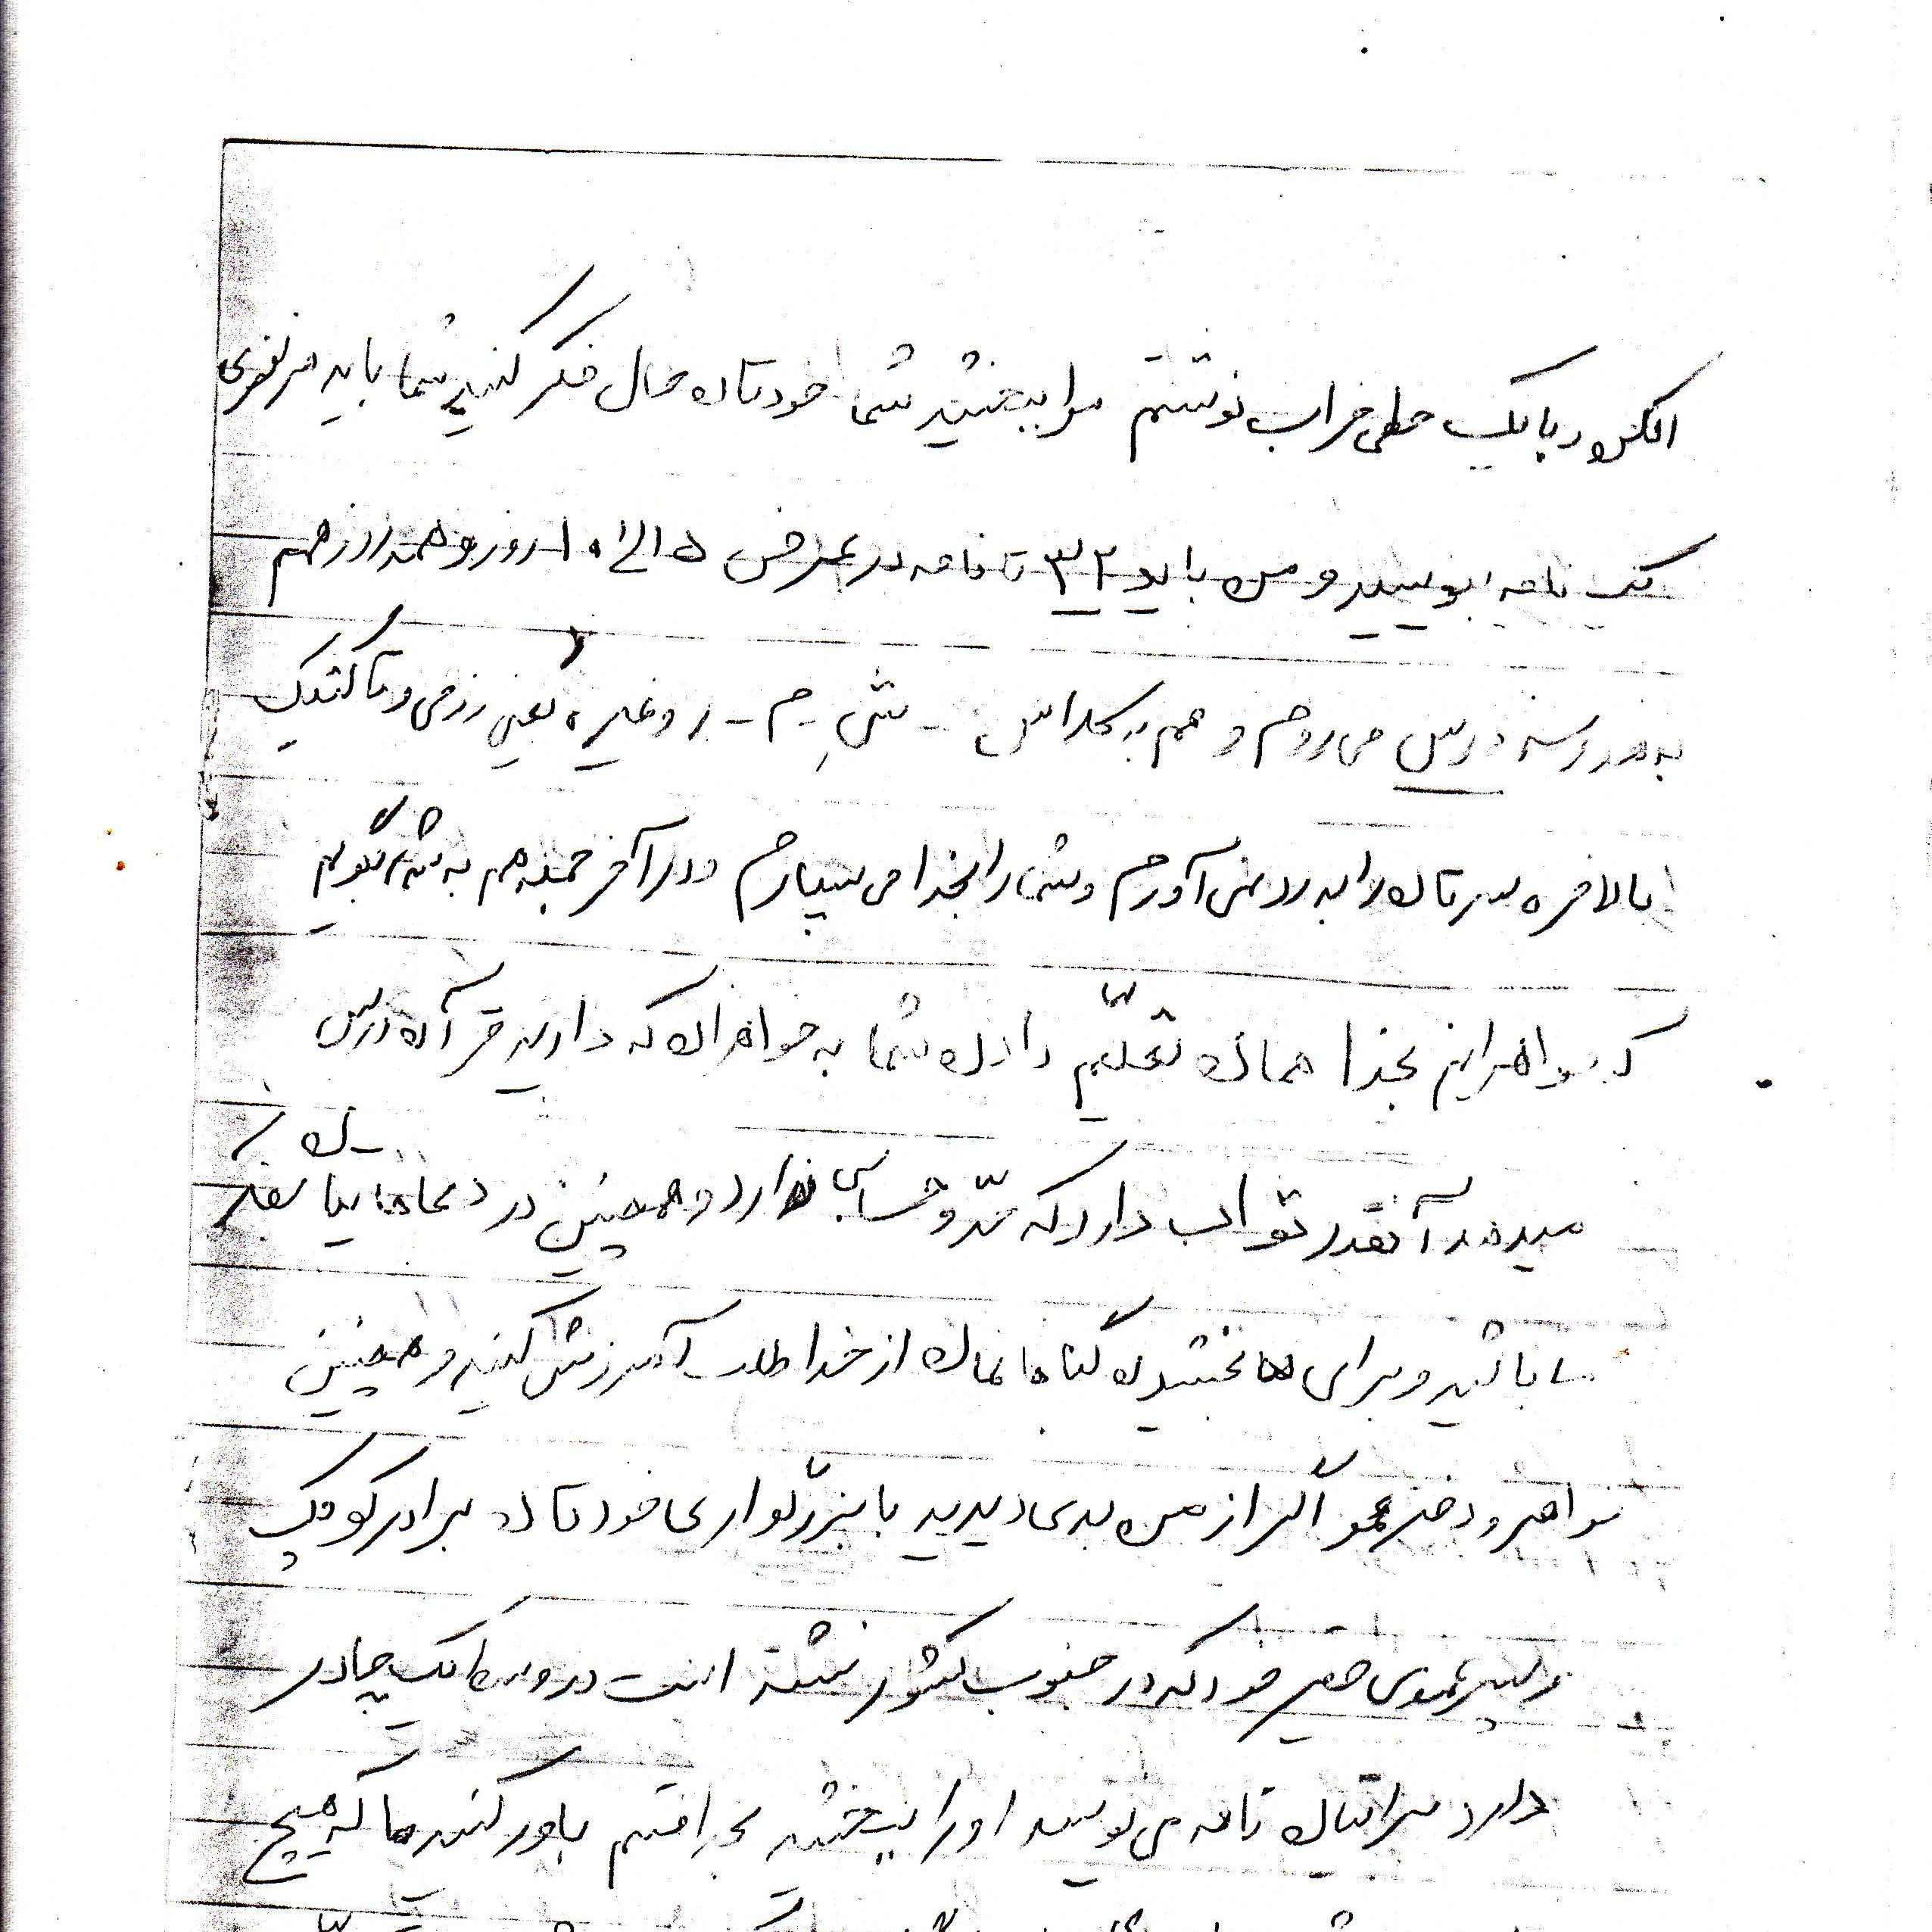 اگر زود با یک خطی خراب نوشتم مرا ببخشید شما خودتان حال فکر کنید شما باید هر نفری
یک نامه بنویسید و من باید ۳۲ تا نامه در عرض ۵ الی ۱۰ روز و همه روز هم
به مدرسه درس می روم و هم به کلاس - ش - م - ر و غیره یعنی رزمی و تاکتیک
بالاخره سرتان را به درد نمی آورم و شما را بخدا می سپارم و در آخر جمله هم به شما بگویم
که خواهرانم بخدا همان تعلیم دادن شما به خواهران که دارید قرآن درس
میدهد آنقدر ثواب دارد که حدّ و حسابی ندارد و همچنین در دعاها بیا
باشید و برای بخشیدن گناهانمان از خدا طلب آمرزش کنید و همچنین
خواهر و دختر عمو اگر از من بدی دیدید با بزرگواری خودتان برادر کوچک
و پسر عموی حقیر خود که در جنوب کشور نشسته است در وسط یک چادر
دارد برایتان نامه می نویسد او را ببخشید بخدا قسم باور کنید ما که هیچ